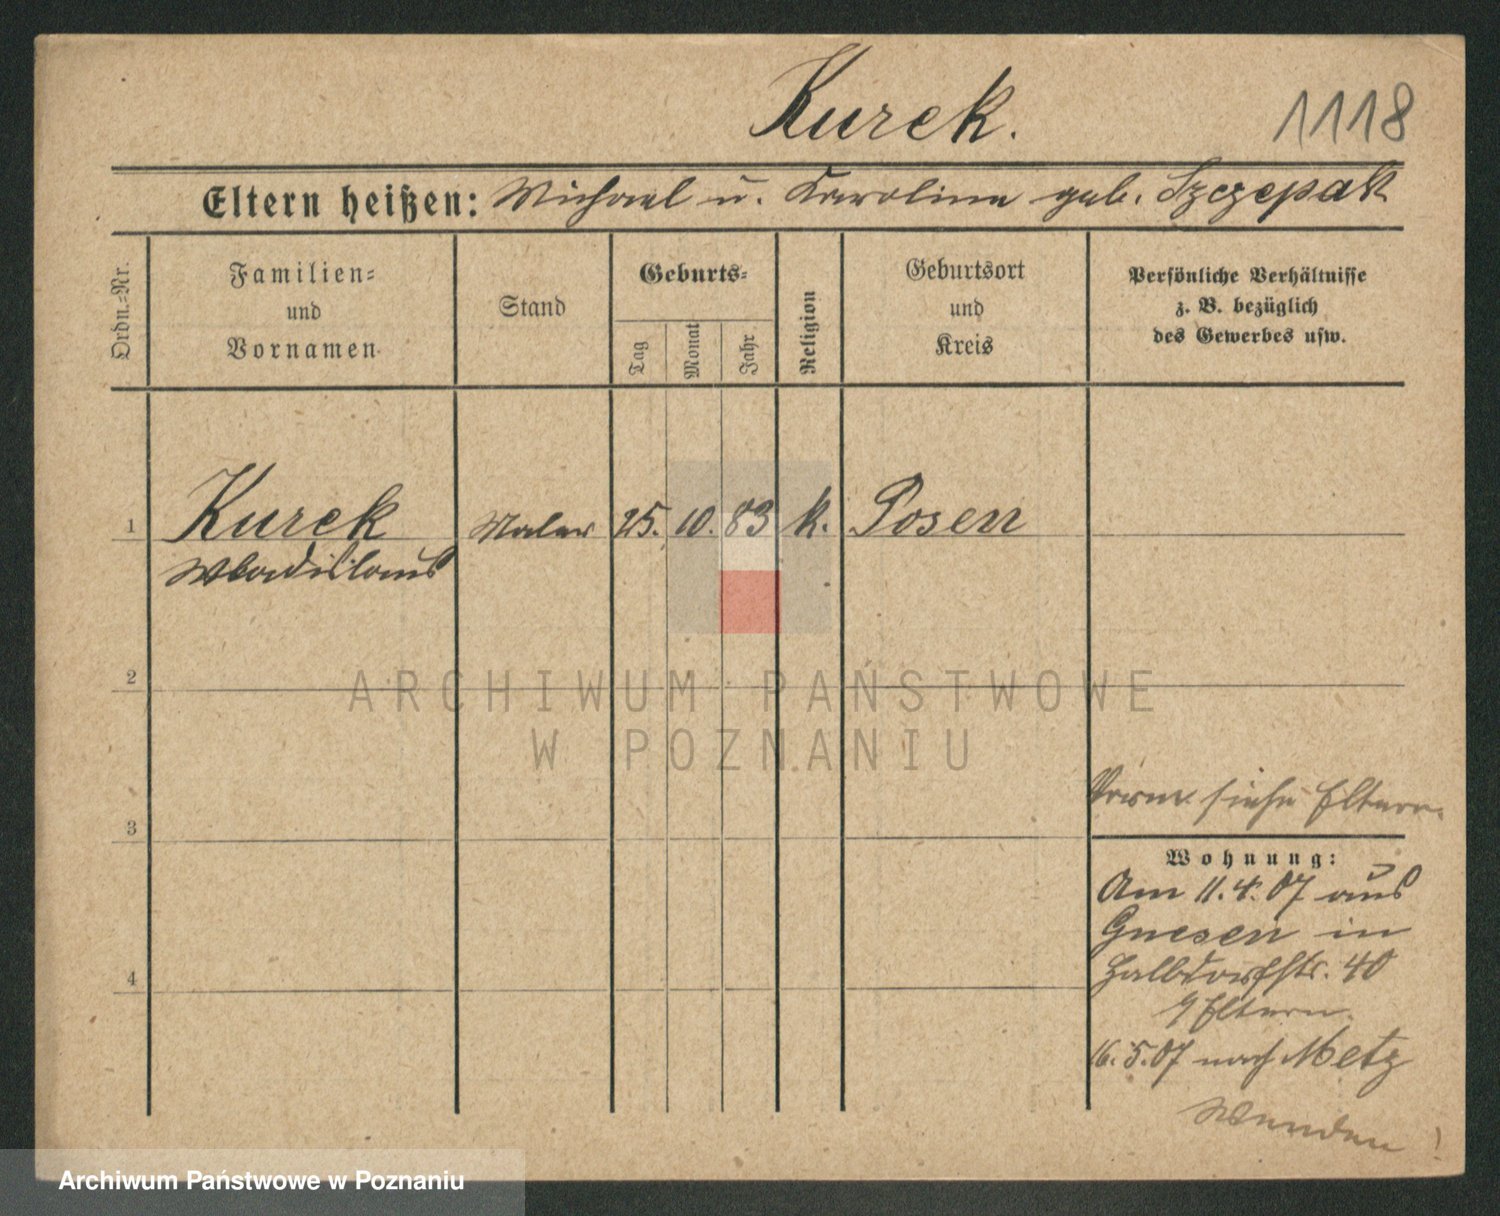 Kurek.
1118
Eltern heißen: Michael u. Karolina geb. Szczepak
Ordn.=Nr.
Familien=
und
Vornamen
Stand
Geburts=
Tag
Monat
Jahr
Religion
Geburtsort
und
Kreis
Persönliche Verhältnisse
z. B. bezüglich
des Gewerbes usw.
1 Kurek Maler 25. 10. 83 k. Posen
Wladislaus
2
ARCHIWUM PAŃSTWOWE
W POZNANIU
siehe Eltern.
3
Wohnung:
Am 11.4.07 aus
Gnesen in
Halbdorfstr. 40
Eltern.
4
16.5.07 nach Metz
Wenden!
Archiwum Państwowe w Poznaniu